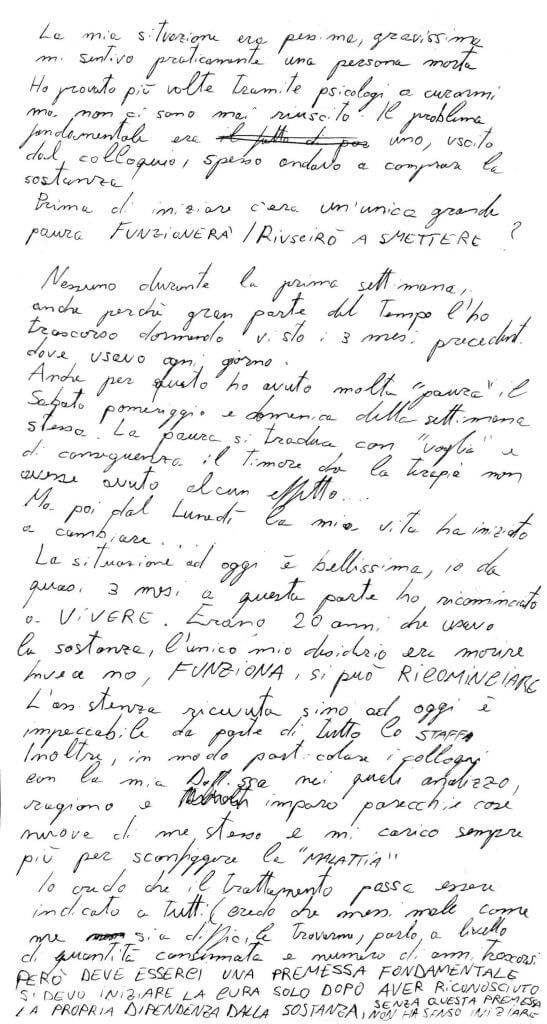 La mia situazione era pessima, gravissima
mi sentivo praticamente una persona morta
Ho provato più volte tramite psicologi a curarmi
ma non ci sono mai riuscito. Il problema
fondamentale era il fatto di poi uno, uscito
dal colloquio, spesso andavo a comprare la
sostanza
Prima di iniziare c'era un'unica grande
paura FUNZIONERÀ / RIUSCIRÒ A SMETTERE ?
Nessuno durante la prima settimana,
anche perchè gran parte del Tempo l'ho
trascorso dormendo visto i 3 mesi precedenti
dove usavo ogni giorno.
Anche per questo ho avuto molta "paura" il
Sabato pomeriggio e domenica della settimana
stessa. La paura si traduce con "voglia" e
di conseguenza il timore che la terapia non
avesse avuto alcun effetto...
Ma poi dal Lunedì la mia vita ha iniziato
a cambiare...
La situazione ad oggi è bellissima, io da
quasi 3 mesi a questa parte ho ricominciato
a VIVERE. Erano 20 anni che usavo
la sostanza, l'unico mio desiderio era morire
Invece no, FUNZIONA, si può RICOMINCIARE
L'assistenza ricevuta sino ad oggi è
impeccabile da parte di tutto lo STAFF
Inoltre, in modo particolare i colloqui
con la mia Dott.ssa nei quali analizzo,
ragiono e imparo parecchie cose
nuove di me stesso e mi carico sempre
più per sconfiggere la "MALATTIA"
Io credo che il trattamento possa essere
indicato a tutti (credo che messi male come
me sia difficile trovarne, parlo a livello
di quantità consumata e numero di anni trascorsi
PERÒ DEVE ESSERCI UNA PREMESSA FONDAMENTALE
SI DEVO INIZIARE LA CURA SOLO DOPO AVER RICONOSCIUTO
LA PROPRIA DIPENDENZA DALLA SOSTANZA, SENZA QUESTA PREMESSA
NON HA SENSO INIZIARE